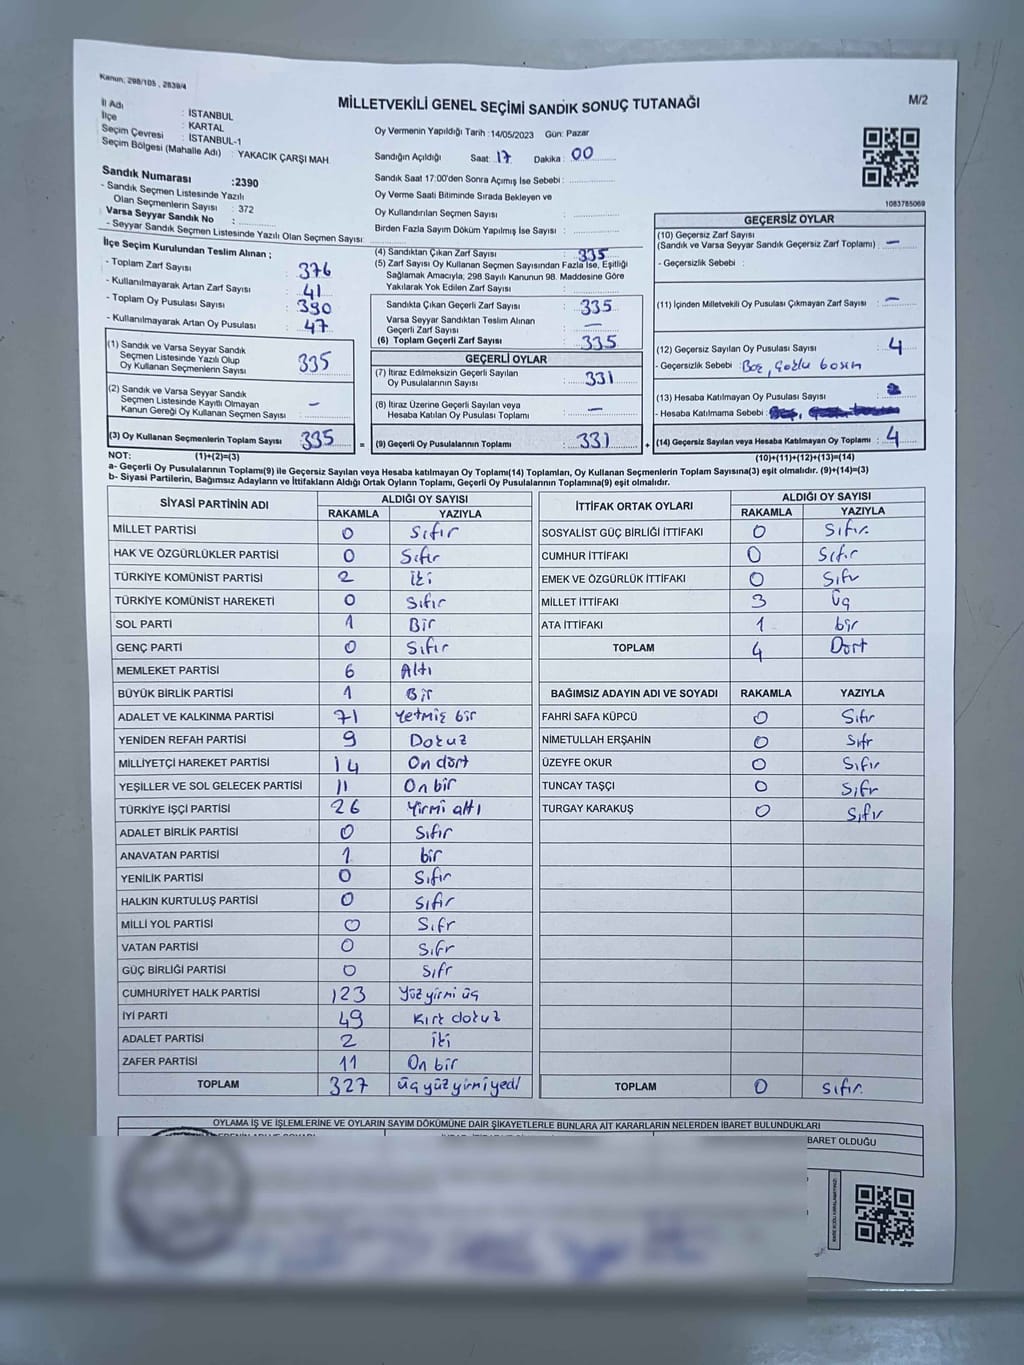 Kanun; 298/105 , 2839/4
MİLLETVEKİLİ GENEL SEÇİMİ SANDIK SONUÇ TUTANAĞI
M/2
İl Adı : İSTANBUL
İlçe : KARTAL
Seçim Çevresi : İSTANBUL-1
Seçim Bölgesi (Mahalle Adı) : YAKACIK ÇARŞI MAH.
Sandık Numarası :2390
- Sandık Seçmen Listesinde Yazılı
Olan Seçmenlerin Sayısı : 372
Varsa Seyyar Sandık No :
- Seyyar Sandık Seçmen Listesinde Yazılı Olan Seçmen Sayısı:
Oy Vermenin Yapıldığı Tarih :14/05/2023 Gün: Pazar
Sandığın Açıldığı Saat: 17 Dakika: 00
Sandık Saat 17:00'den Sonra Açımış İse Sebebi :
Oy Verme Saati Bitiminde Sırada Bekleyen ve
Oy Kullandırılan Seçmen Sayısı :
Birden Fazla Sayım Döküm Yapılmış İse Sayısı :
1083785069
İlçe Seçim Kurulundan Teslim Alınan ;
- Toplam Zarf Sayısı : 376
- Kullanılmayarak Artan Zarf Sayısı : 41
- Toplam Oy Pusulası Sayısı : 390
- Kullanılmayarak Artan Oy Pusulası : 47
(1) Sandık ve Varsa Seyyar Sandık
Seçmen Listesinde Yazılı Olup
Oy Kullanan Seçmenlerin Sayısı : 335
(2) Sandık ve Varsa Seyyar Sandık
Seçmen Listesinde Kayıtlı Olmayan
Kanun Gereği Oy Kullanan Seçmen Sayısı : –
(3) Oy Kullanan Seçmenlerin Toplam Sayısı : 335 =
(4) Sandıktan Çıkan Zarf Sayısı : 335
(5) Zarf Sayısı Oy Kullanan Seçmen Sayısından Fazla İse, Eşitliği
Sağlamak Amacıyla, 298 Sayılı Kanunun 98. Maddesine Göre
Yakılarak Yok Edilen Zarf Sayısı :
Sandıkta Çıkan Geçerli Zarf Sayısı : 335
Varsa Seyyar Sandıktan Teslim Alınan
Geçerli Zarf Sayısı : –
(6) Toplam Geçerli Zarf Sayısı : 335
GEÇERLİ OYLAR
(7) İtiraz Edilmeksizin Geçerli Sayılan
Oy Pusulalarının Sayısı : 331
(8) İtiraz Üzerine Geçerli Sayılan veya
Hesaba Katılan Oy Pusulası Toplamı : –
(9) Geçerli Oy Pusulalarının Toplamı : 331 +
GEÇERSİZ OYLAR
(10) Geçersiz Zarf Sayısı
(Sandık ve Varsa Seyyar Sandık Geçersiz Zarf Toplamı) : –
- Geçersizlik Sebebi :
(11) İçinden Milletvekili Oy Pusulası Çıkmayan Zarf Sayısı : –
(12) Geçersiz Sayılan Oy Pusulası Sayısı : 4
- Geçersizlik Sebebi : Boş, Çoklu basım
(13) Hesaba Katılmayan Oy Pusulası Sayısı :
- Hesaba Katılmama Sebebi :
(14) Geçersiz Sayılan veya Hesaba Katılmayan Oy Toplamı : 4
NOT: (1)+(2)=(3) (10)+(11)+(12)+(13)=(14)
a- Geçerli Oy Pusulalarının Toplamı(9) ile Geçersiz Sayılan veya Hesaba katılmayan Oy Toplamı(14) Toplamları, Oy Kullanan Seçmenlerin Toplam Sayısına(3) eşit olmalıdır. (9)+(14)=(3)
b- Siyasi Partilerin, Bağımsız Adayların ve İttifakların Aldığı Ortak Oyların Toplamı, Geçerli Oy Pusulalarının Toplamına(9) eşit olmalıdır.
SİYASİ PARTİNİN ADI ALDIĞI OY SAYISI
RAKAMLA YAZIYLA
MİLLET PARTİSİ 0 Sıfır
HAK VE ÖZGÜRLÜKLER PARTİSİ 0 Sıfır
TÜRKİYE KOMÜNİST PARTİSİ 2 İki
TÜRKİYE KOMÜNİST HAREKETİ 0 Sıfır
SOL PARTİ 1 Bir
GENÇ PARTİ 0 Sıfır
MEMLEKET PARTİSİ 6 Altı
BÜYÜK BİRLİK PARTİSİ 1 Bir
ADALET VE KALKINMA PARTİSİ 71 Yetmiş bir
YENİDEN REFAH PARTİSİ 9 Dokuz
MİLLİYETÇİ HAREKET PARTİSİ 14 On dört
YEŞİLLER VE SOL GELECEK PARTİSİ 11 On bir
TÜRKİYE İŞÇİ PARTİSİ 26 Yirmi altı
ADALET BİRLİK PARTİSİ 0 Sıfır
ANAVATAN PARTİSİ 1 bir
YENİLİK PARTİSİ 0 Sıfır
HALKIN KURTULUŞ PARTİSİ 0 Sıfır
MİLLİ YOL PARTİSİ 0 Sıfr
VATAN PARTİSİ 0 Sıfr
GÜÇ BİRLİĞİ PARTİSİ 0 Sıfr
CUMHURİYET HALK PARTİSİ 123 Yüz yirmi üç
İYİ PARTİ 49 Kırk dokuz
ADALET PARTİSİ 2 İki
ZAFER PARTİSİ 11 On bir
TOPLAM 327 üç yüz yirmi yedi
İTTİFAK ORTAK OYLARI ALDIĞI OY SAYISI
RAKAMLA YAZIYLA
SOSYALİST GÜÇ BİRLİĞİ İTTİFAKI 0 Sıfır
CUMHUR İTTİFAKI 0 Sıfır
EMEK VE ÖZGÜRLÜK İTTİFAKI 0 Sıfır
MİLLET İTTİFAKI 3 Üç
ATA İTTİFAKI 1 bir
TOPLAM 4 Dört
BAĞIMSIZ ADAYIN ADI VE SOYADI RAKAMLA YAZIYLA
FAHRİ SAFA KÜPCÜ 0 Sıfır
NİMETULLAH ERŞAHİN 0 Sıfr
ÜZEYFE OKUR 0 Sıfır
TUNCAY TAŞÇI 0 Sıfr
TURGAY KARAKUŞ 0 Sıfır
TOPLAM 0 sıfır.
OYLAMA İŞ VE İŞLEMLERİNE VE OYLARIN SAYIM DÖKÜMÜNE DAİR ŞİKAYETLERLE BUNLARA AİT KARARLARIN NELERDEN İBARET BULUNDUKLARI
BARET OLDUĞU